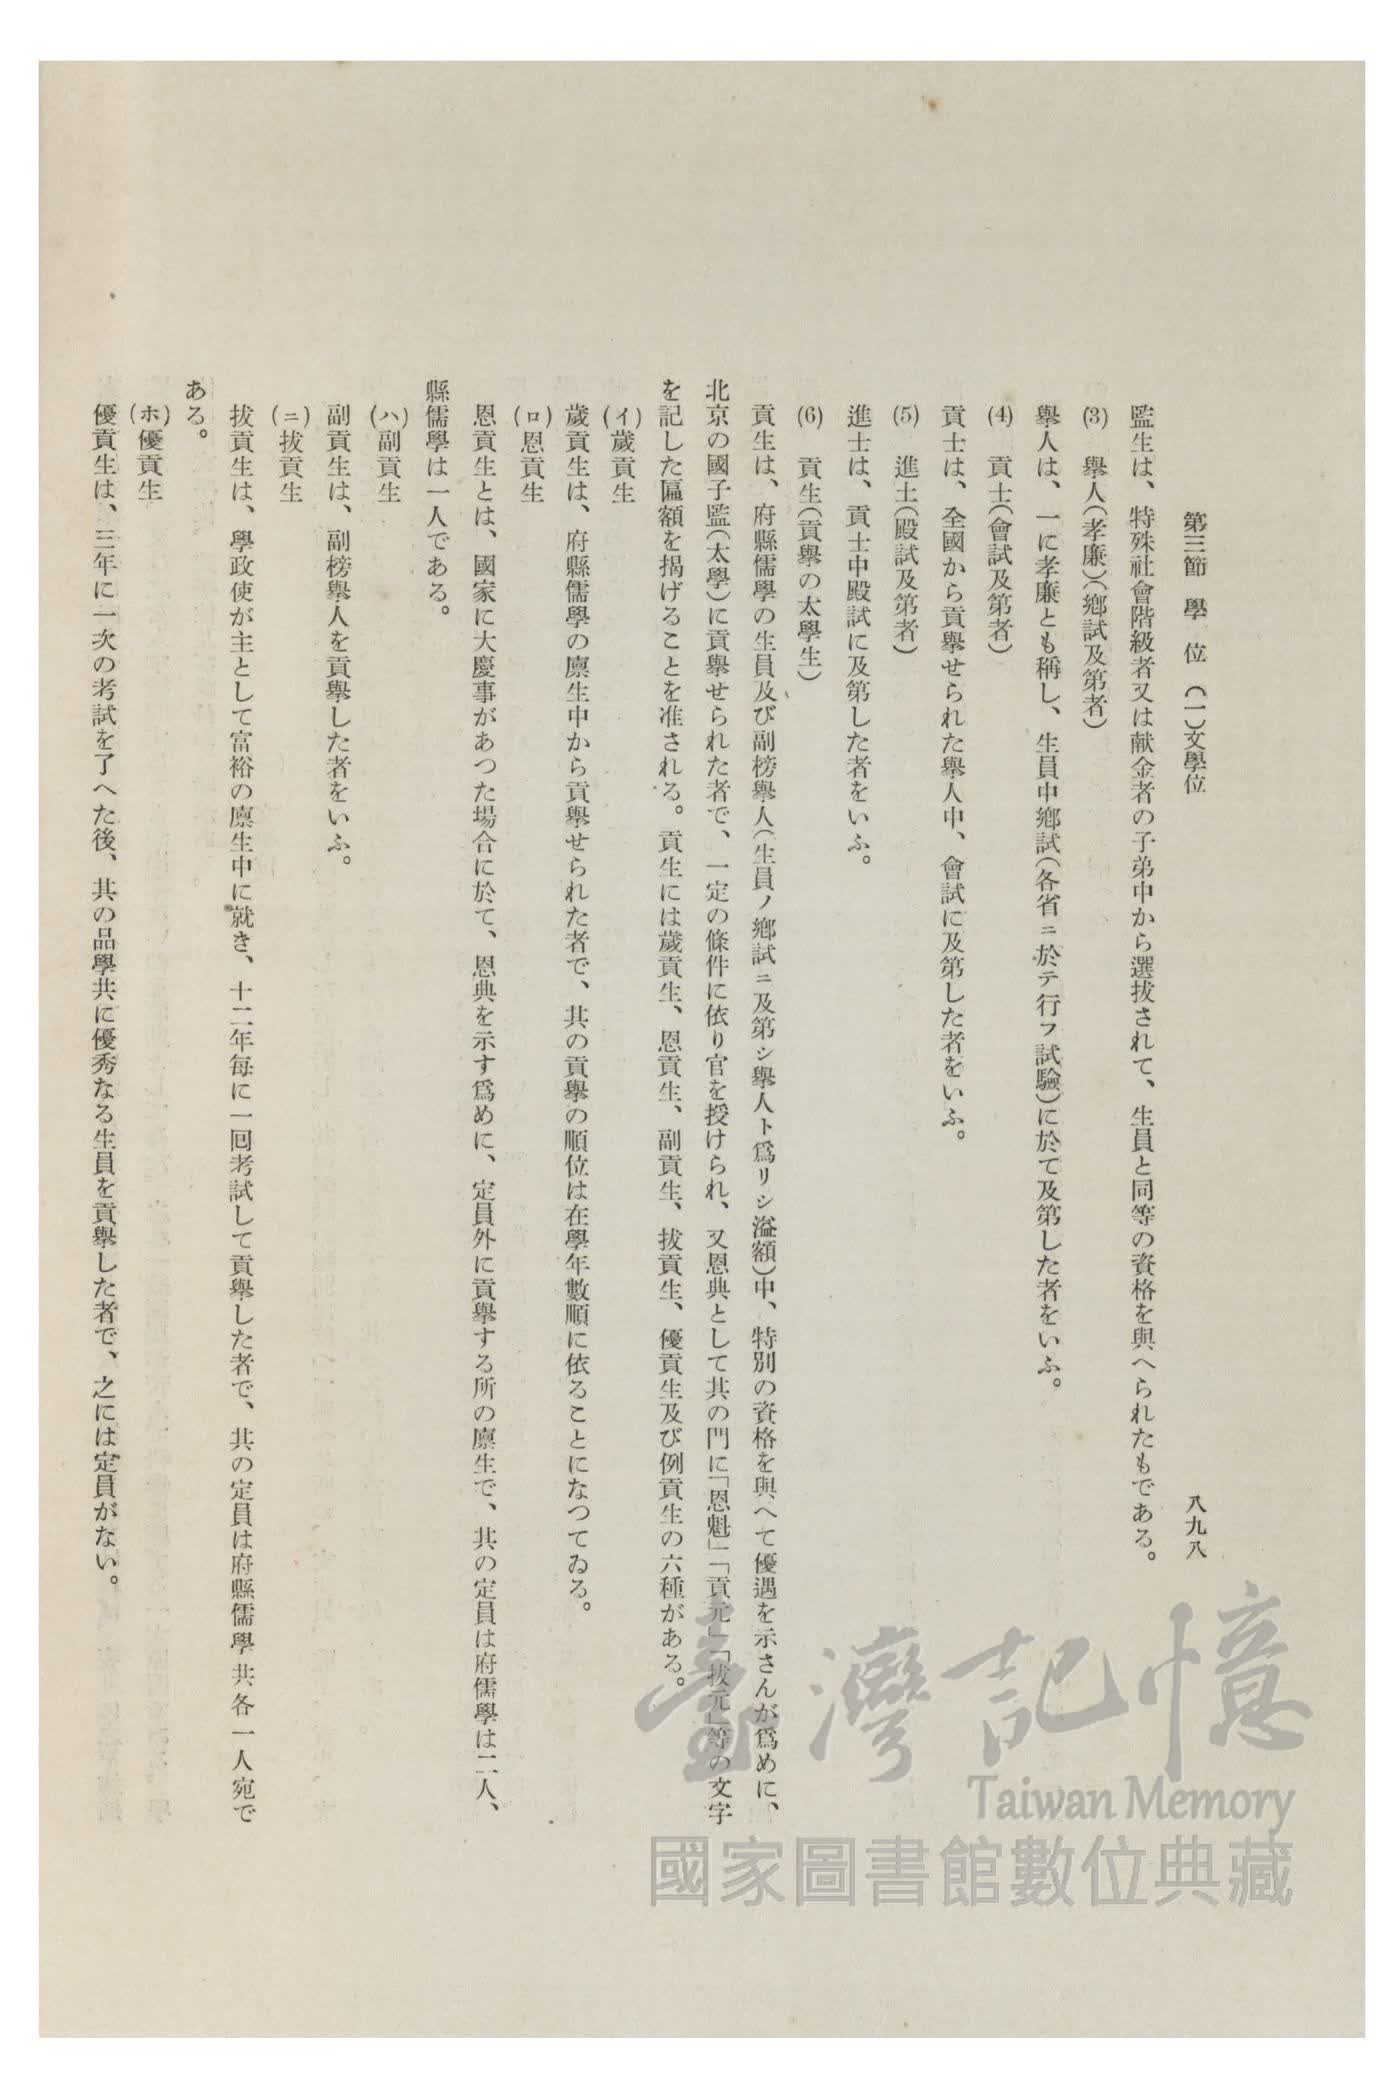 第三節 學位 (一)文學位
八九八
監生は、特殊社會階級者又は献金者の子弟中から選拔されて、生員と同等の資格を與へられたもである。
(3) 擧人(孝廉)(鄕試及第者)
擧人は、一に孝廉とも稱し、生員中鄕試(各省ニ於テ行フ試驗)に於て及第した者をいふ。
(4) 貢士(會試及第者)
貢士は、全國から貢擧せられた擧人中、會試に及第した者をいふ。
(5) 進士(殿試及第者)
進士は、貢士中殿試に及第した者をいふ。
(6) 貢生(貢擧の太學生)
貢生は、府縣儒學の生員及び副榜擧人(生員ノ鄕試ニ及第シ擧人ト爲リシ溢額)中、特別の資格を與へて優遇を示さんが爲めに、
北京の國子監(太學)に貢擧せられた者で、一定の條件に依り官を授けられ、又恩典として其の門に「恩魁」「貢元」「拔元」等の文字
を記した匾額を揭げることを准される。貢生には歲貢生、恩貢生、副貢生、拔貢生、優貢生及び例貢生の六種がある。
(イ)歲貢生
歲貢生は、府縣儒學の廩生中から貢擧せられた者で、其の貢擧の順位は在學年數順に依ることになつてゐる。
(ロ)恩貢生
恩貢生とは、國家に大慶事があつた場合に於て、恩典を示す爲めに、定員外に貢擧する所の廩生で、其の定員は府儒學は二人、
縣儒學は一人である。
(ハ)副貢生
副貢生は、副榜擧人を貢擧した者をいふ。
(ニ)拔貢生
拔貢生は、學政使が主として富裕の廩生中に就き、十二年每に一回考試して貢擧した者で、其の定員は府縣儒學共各一人宛で
ある。
(ホ)優貢生
優貢生は、三年に一次の考試を了へた後、其の品學共に優秀なる生員を貢擧した者で、之には定員がない。
臺灣記憶
Taiwan Memory
國家圖書館數位典藏